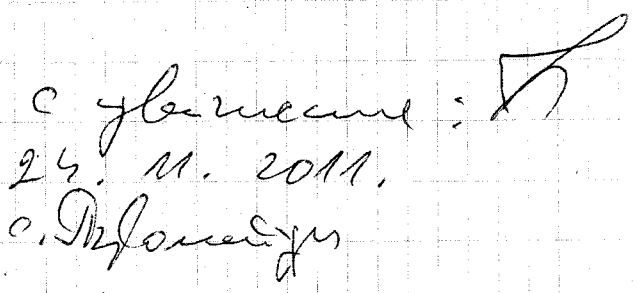 с уважение:
24. 11. 2011.
с. Първомайци